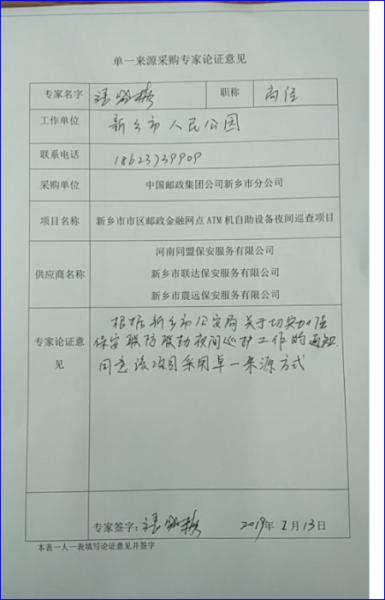 单一来源采购专家论证意见
专家名字 职称 高径
工作单位 新乡市人民公园
联系电话 18623739909
采购单位 中国邮政集团公司新乡市分公司
项目名称 新乡市市区邮政金融网点ATM机自助设备夜间巡查项目
供应商名称
河南同盟保安服务有限公司
新乡市联达保安服务有限公司
新乡市震远保安服务有限公司
专家论证意见
根据新乡市公安局关于切实加强
保安联防被动夜间巡护工作的通知
同意该项目采用单一来源方式
专家签字: 2019年2月13日
本表一人一表填写论证意见并签字